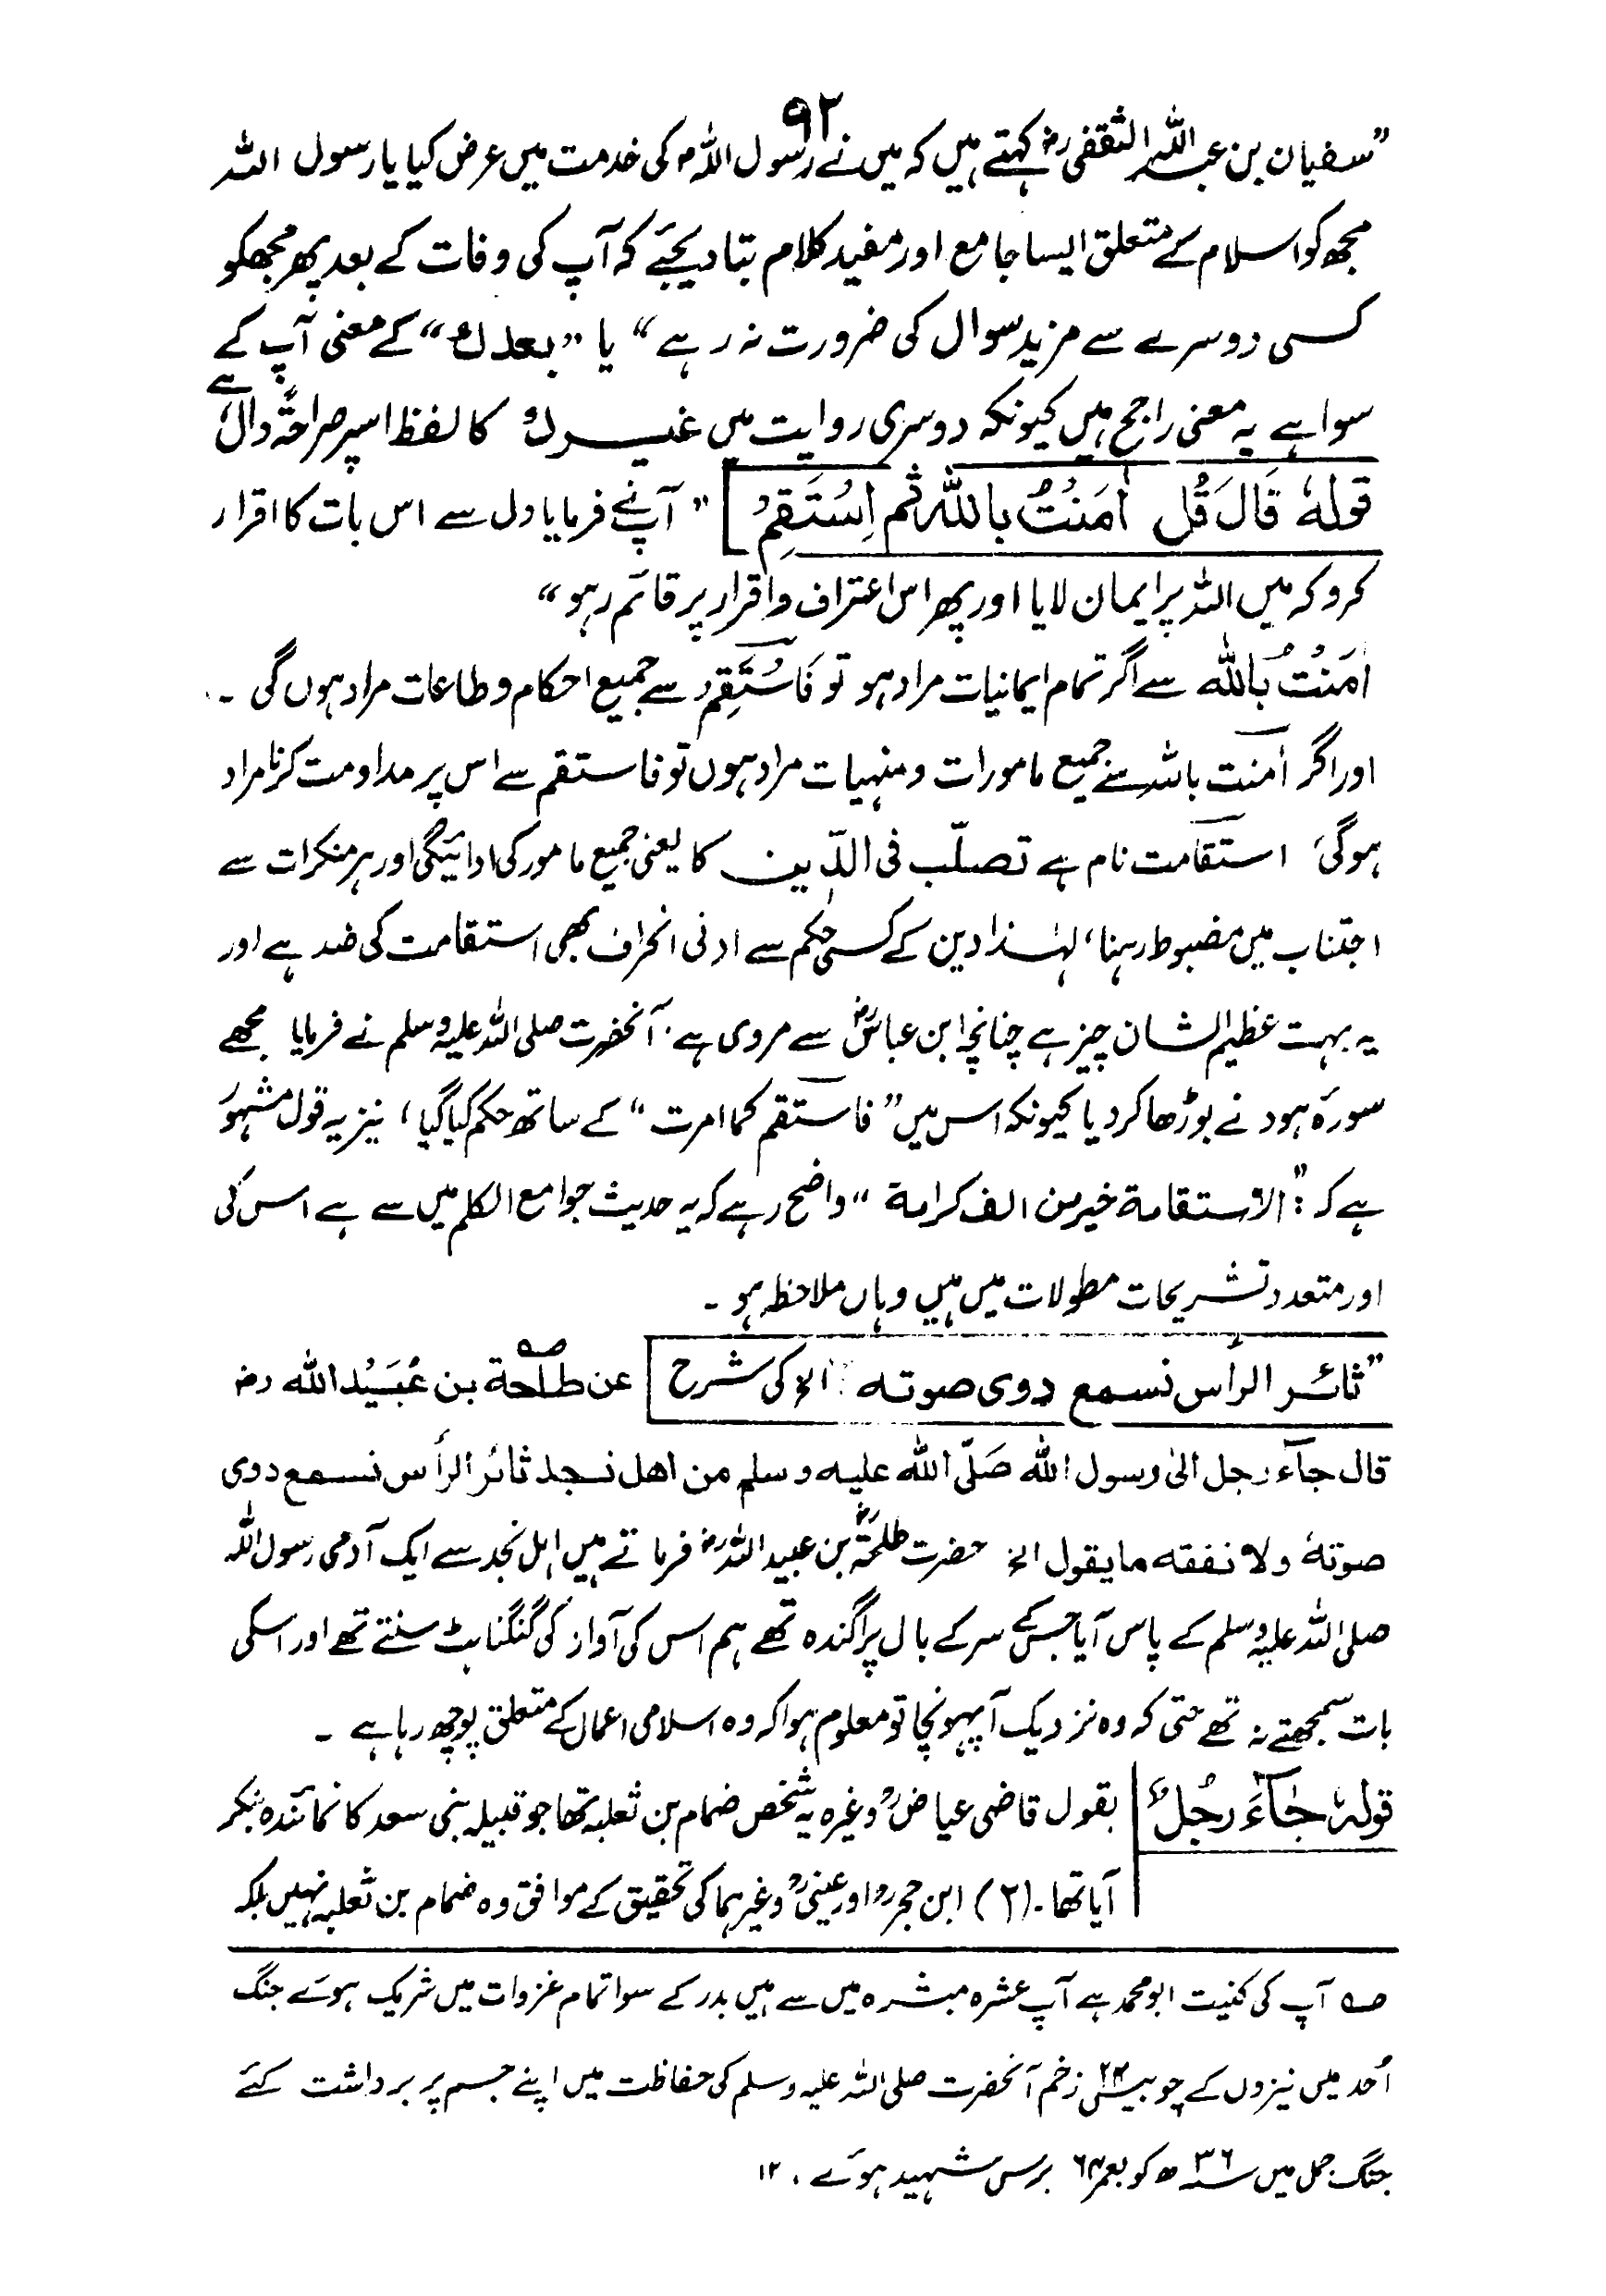 ۹۲
”سفیان بن عبداللہ الثقفی رض کہتے ہیں کہ میں نے رسول اللہ ﷺ کی خدمت میں عرض کیا یا رسول اللہ
مجھ کو اسلام کے متعلق ایسا جامع اور مفید کلام بتا دیجئے کہ آپ کی وفات کے بعد پھر مجھکو
کسی دوسرے سے مزید سوال کی ضرورت نہ رہے“ یا ”بعدك“ کے معنی آپ کے
سوا ہے یہ معنی راجح ہیں کیونکہ دوسری روایت میں غیرك کا لفظ اسپر صراحۃً دال ہے
قولہٗ قَالَ قُل اٰمَنْتُ بِاللّٰہِ ثُم اِسْتَقِمْ ” آپنے فرمایا دل سے اس بات کا اقرار
کرو کہ میں اللہ پر ایمان لایا اور پھر اس اعتراف و اقرار پر قائم رہو“
اٰمَنْتُ بِاللّٰہ سے اگر تمام ایمانیات مراد ہو تو فَاسْتَقِمْ سے جمیع احکام و طاعات مراد ہوں گی ۔
اور اگر اٰمنت باللہ سے جمیع مامورات و منہیات مراد ہوں تو فاستقم سے اس پر مداومت کرنا مراد
ہوگی، استقامت نام ہے تصلّب فی الدّین کا یعنی جمیع مامور کی ادائیگی اور ہر منکرات سے
اجتناب میں مضبوط رہنا، لہٰذا دین کے کسی حکم سے ادنی انحراف بھی استقامت کی ضد ہے اور
یہ بہت عظیم الشان چیز ہے چنانچہ ابن عباسؓ سے مروی ہے، آنحضرت صلی اللہ علیہ وسلم نے فرمایا مجھے
سورہ ہود نے بوڑھا کر دیا کیونکہ اس میں ”فاستقم کما امرت“ کے ساتھ حکم کیا گیا، نیز یہ قول مشہور
ہے کہ : ”الاستقامة خیر من الف کرامة“ واضح رہے کہ یہ حدیث جوامع الکلم میں سے ہے اس کی
اور متعدد تشریحات مطولات میں ہیں وہاں ملاحظہ ہو ۔
”ثائر الرأس نسمع دوی صوته“ الخ کی شرح عن طلحة بن عُبَیْد اللہ رض
قال جآء رجل الیٰ رسول اللہ صَلّی اللہ علیہ وسلم من اھل نجد ثائر الرأس نسمع دوی
صوتهٗ ولا نفقه ما یقول الخ حضرت طلحہؓ بن عبید اللہ رض فرماتے ہیں اہل نجد سے ایک آدمی رسول اللہ
صلی اللہ علیہ وسلم کے پاس آیا جس کے سر کے بال پراگندہ تھے ہم اس کی آواز کی گنگناہٹ سنتے تھے اور اسکی
بات سمجھتے نہ تھے حتی کہ وہ نزدیک آ پہونچا تو معلوم ہوا کہ وہ اسلامی اعمال کے متعلق پوچھ رہا ہے ۔
قولہٗ جَآءَ رَجُلٌ بقول قاضی عیاضؒ وغیرہ یہ شخص ضمام بن ثعلبہ تھا جو قبیلہ بنی سعد کا نمائندہ بنکر
آیا تھا ۔ (۲) ابن حجرؒ اور عینیؒ وغیرہما کی تحقیق کے موافق وہ ضمام بن ثعلبہ نہیں بلکہ
صہ آپ کی کنیت ابو محمد ہے آپ عشرہ مبشرہ میں سے ہیں بدر کے سوا تمام غزوات میں شریک ہوئے جنگ
اُحد میں نیزوں کے چوبیس ۲۴ زخم آنحضرت صلی اللہ علیہ وسلم کی حفاظت میں اپنے جسم پر برداشت کئے
جنگ جمل میں سنہ ۳۶ ھ کو بعمر ۶۴ برس شہید ہوئے ، ۱۲